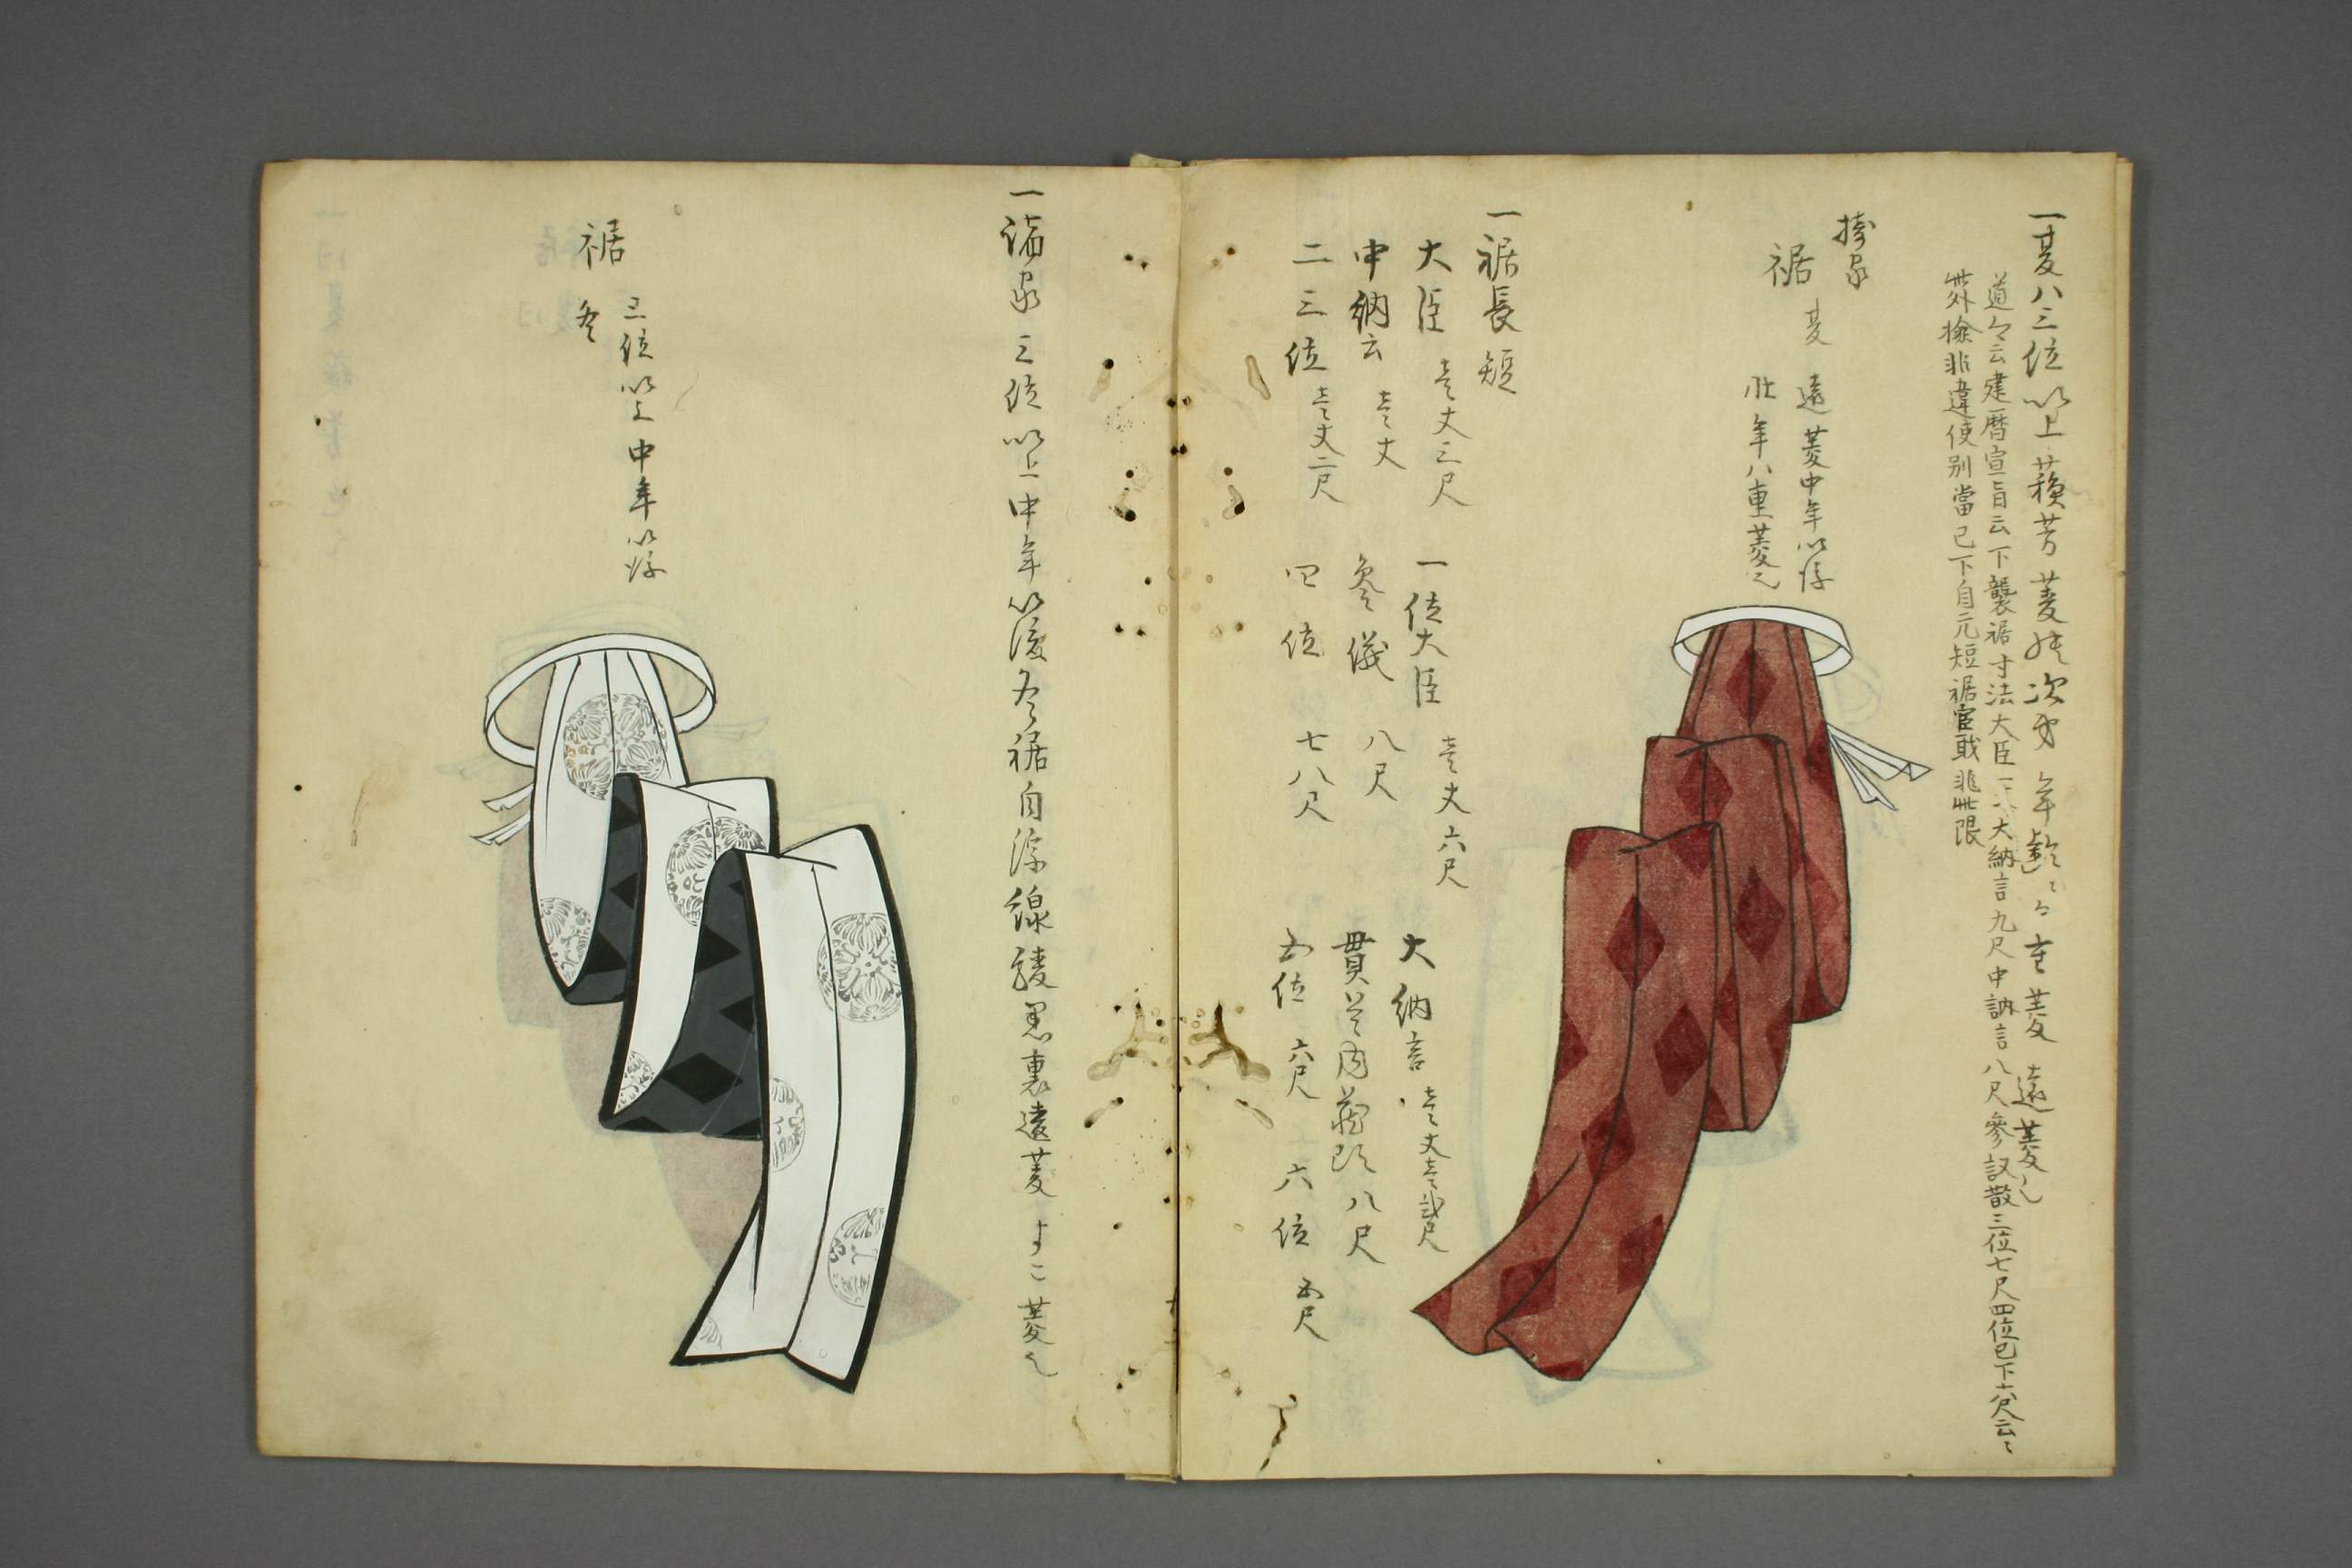 一夏八三位以上蘓芳菱 次才年齢ニ 重菱遠菱也
道云建暦宣旨云下襲裾寸法大臣一丈大納言九尺中訥言八尺參議散三位七尺四位已下六尺云々
此外撿非違使別當已下自元短裾宦職非此限
摂家
裾 夏 遠菱中年以後
壯年八重菱也
一裾長短
大臣 壱丈三尺 一位大臣 壱丈六尺 大納言 壱丈壱弐尺
中納云 壱丈 參儀 八尺 貫首内蔵頭 八尺
二三位 壱丈二尺 四位 七八尺 五位 六尺 六位 五尺
一諸家三位以上中年以後冬裾白浮線綾黒裏遠菱よこ菱也
三位以上中年以後
裾 冬